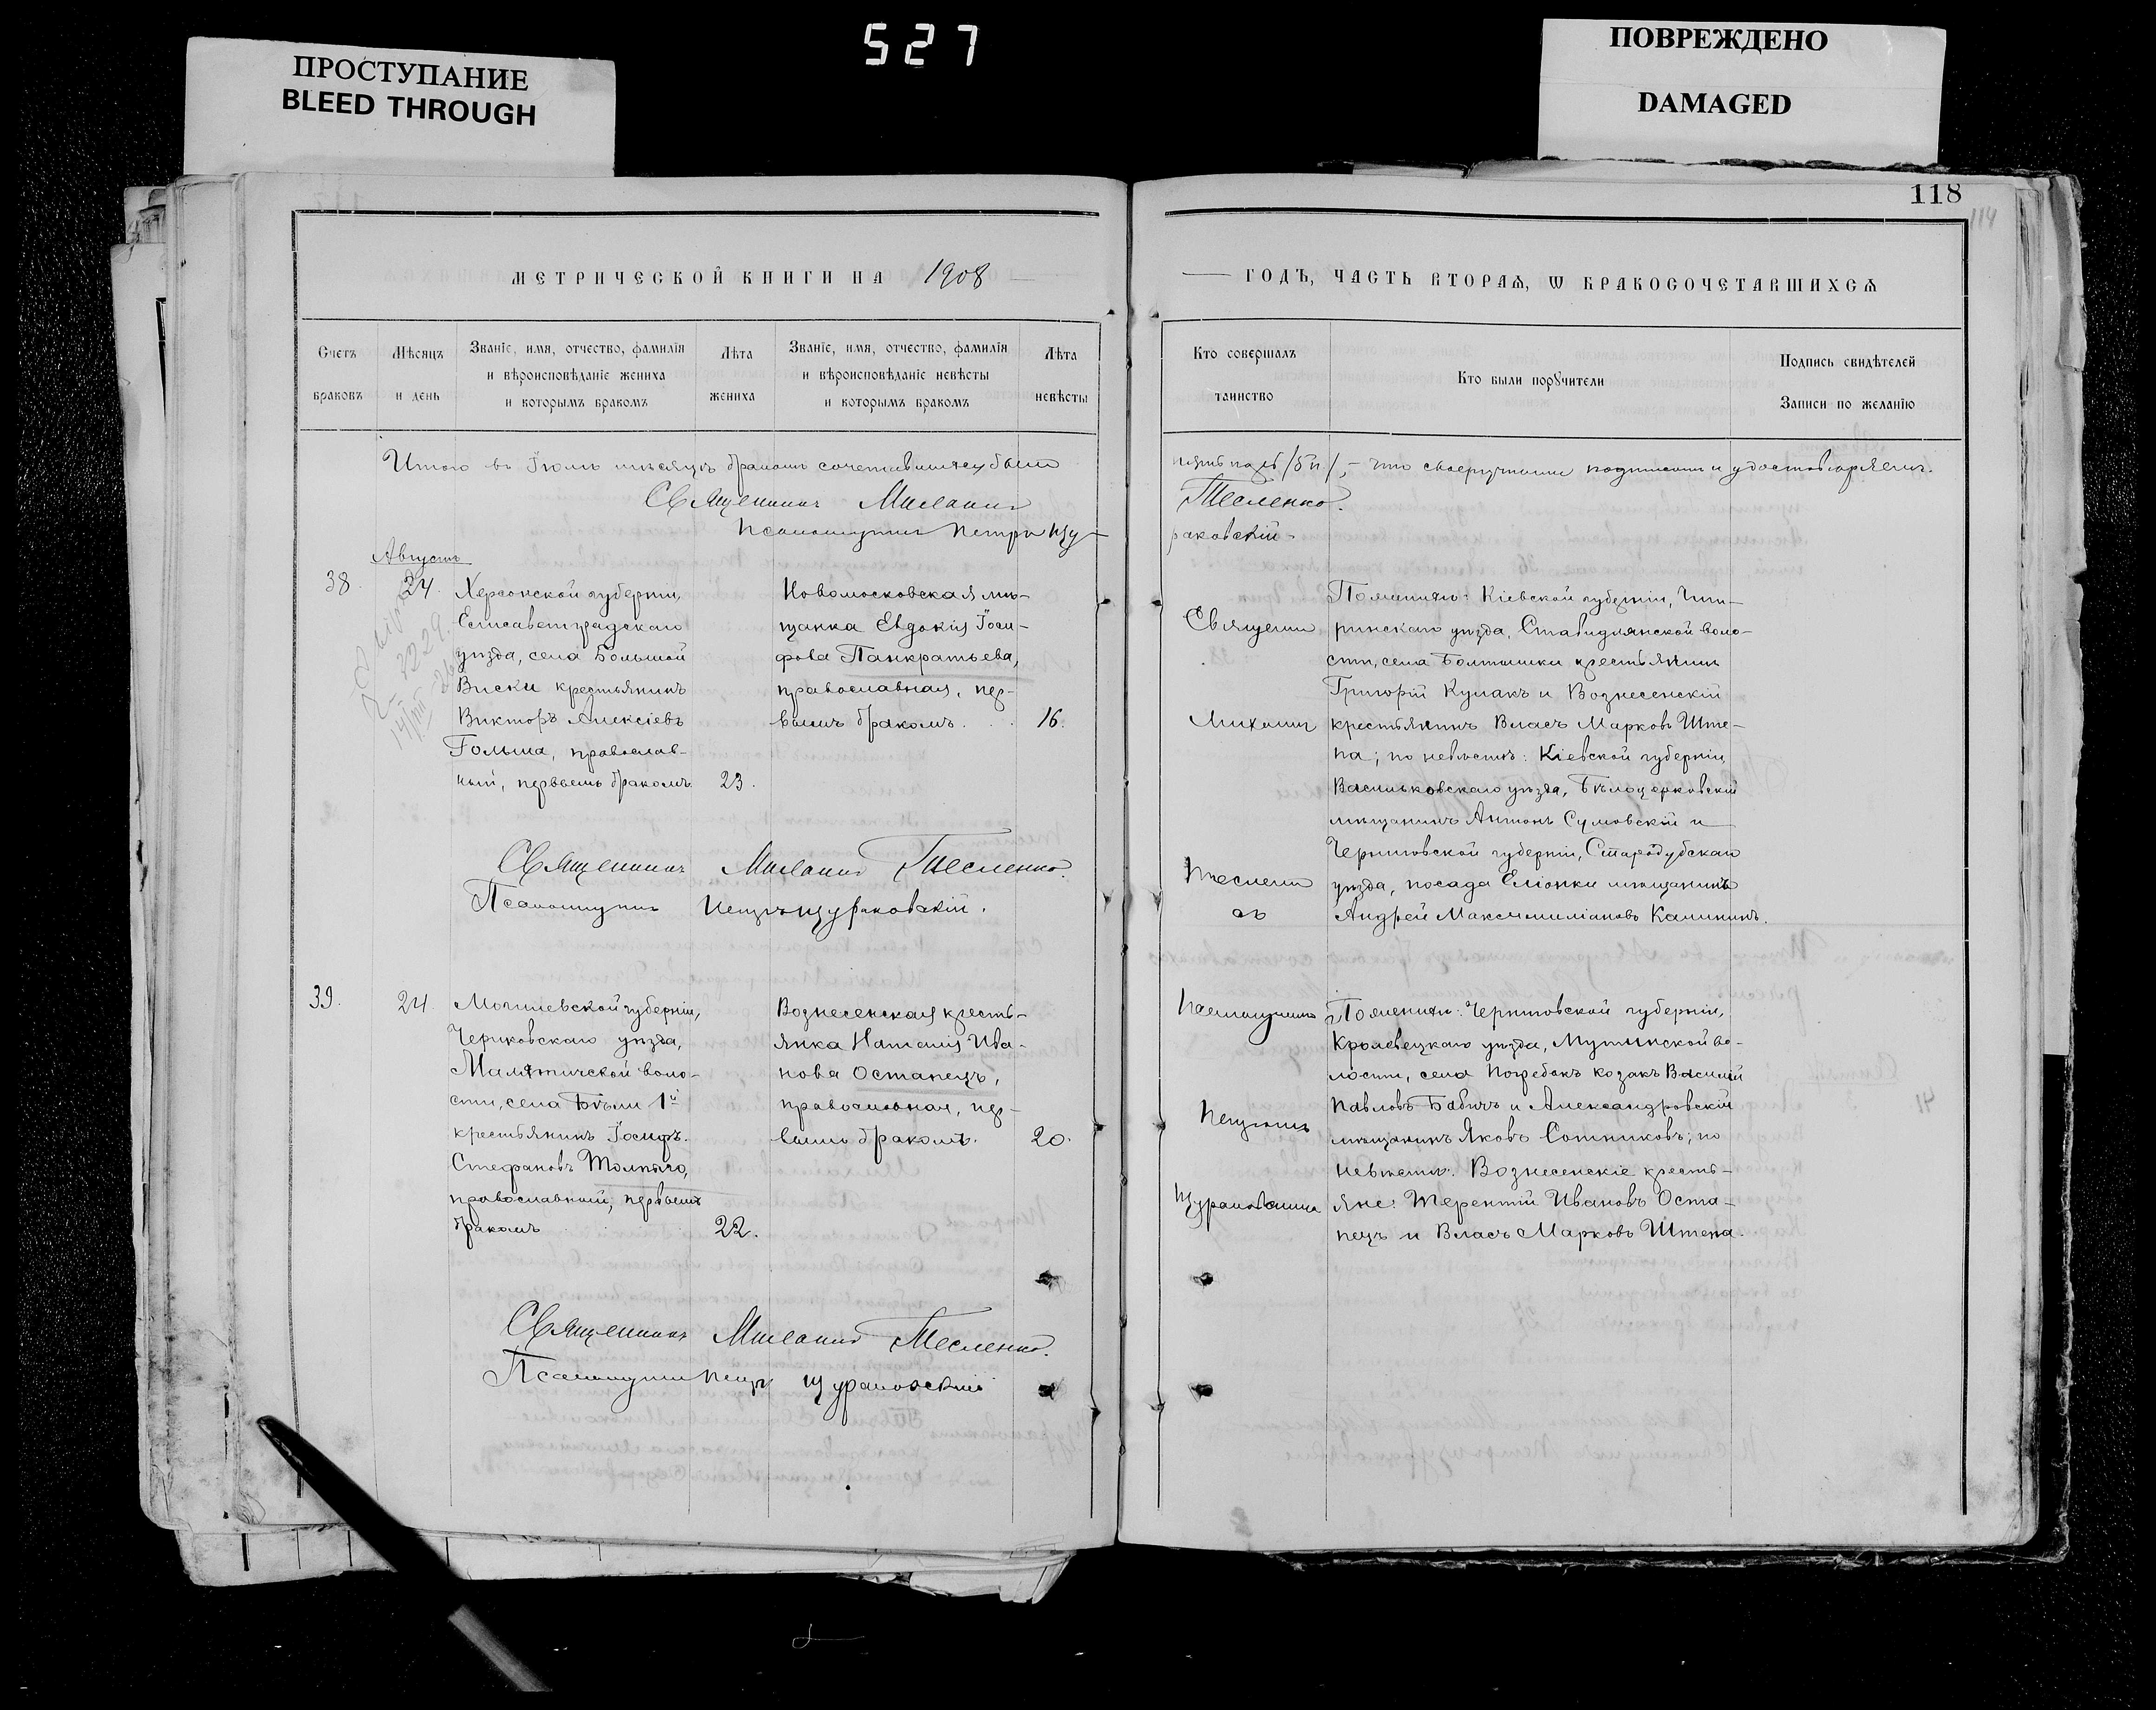 527
ПРОСТУПАНИЕ
BLEED THROUGH
ПОВРЕЖДЕНО
DAMAGED
118
114
МЕТРИЧЕСКОЙ КНИГИ НА 1908
ГОДЪ, ЧАСТЬ ВТОРАѦ, Ѡ БРАКОСОЧЕТАВШИХСѦ
Счетъ браковъ
Мѣсяцъ и день
Званіе, имя, отчество, фамилія
и вѣроисповѣданіе жениха
и которымъ бракомъ
Лѣта жениха
Званіе, имя, отчество, фамилія
и вѣроисповѣданіе невѣсты
и которымъ бракомъ
Лѣта невѣсты
Кто совершалъ таинство
Кто были порꙋчители
Подпись свидѣтелей
Записи по желанію
Итого въ Іюлѣ мѣсяцѣ бракомъ сочетавшихся было
Священникъ
Псаломщикъ Петръ Щу-
/5 п/, - что своеручнымъ подписомъ и удостовѣряемъ.
Тесленко.
раковскій.
Августъ
38.
24.
Херсонской губерніи,
Елисаветградскаго
уѣзда, села Большой
Виски крестьянинъ
Викторъ Алексіевъ
Гольма, православ-
ный, первымъ бракомъ
23.
Новомосковская мѣ-
щанка Евдокія Іоси-
фова Панкратьева,
православная, пер-
вымъ бракомъ.
16.
Священни
Михаилъ
Теслен
По женихѣ: Кіевской губерніи, Чиги-
ринскаго уѣзда, Ставидлянской воло-
сти, села Болтышки крестьянинъ
Григорій Кулакъ и Вознесенскій
крестьянинъ Власъ Марковъ Ште-
па; по невѣстѣ: Кіевской губерніи,
Васильковскаго уѣзда, Бѣлоцерковскій
мѣщанинъ Антонъ Сумовскій и
Черниговской губерніи, Стародубскаго
уѣзда, посада Еліонки мѣщанинъ
Андрей Максимиліановъ Калининъ.
Священникъ Тесленко.
Псаломщикъ Петръ Щураковскій.
39.
24.
Могилевской губерніи,
Чериковскаго уѣзда,
воло-
сти, села 1й
крестьянинъ Іосифъ
Стефановъ Толпыго,
православный, первымъ
бракомъ
22.
Вознесенская кресть-
янка Наталія Ива-
нова Остапецъ,
православная, пер-
вымъ бракомъ.
20.
Псаломщикъ
Петръ
Щураковскій
По женихѣ: Черниговской губерніи,
Кролевецкаго уѣзда, Мутинской во-
лости, села Погребокъ козакъ Василій
Павловъ Бабичъ и Александровскій
мѣщанинъ Яковъ Сотниковъ; по
невѣстѣ: Вознесенскіе кресть-
яне: Терентій Ивановъ Оста-
пецъ и Власъ Марковъ Штепа.
Священникъ Тесленко.
Псаломщикъ Петръ Щураковскій